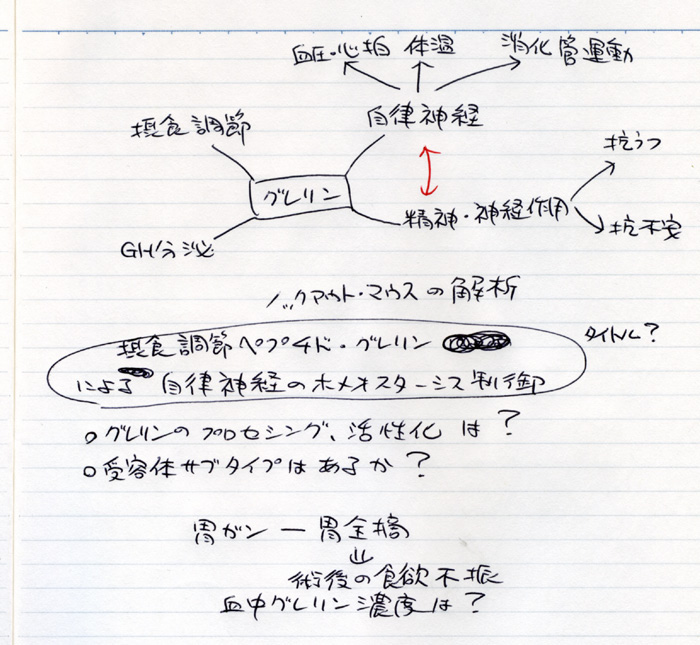 血圧・心拍 体温 消化管運動
摂食調節 自律神経
抗うつ
グレリン
精神・神経作用
抗不安
GH分泌
ノックアウト・マウスの解析
摂食調節ペプチド・グレリン
タイトル?
による 自律神経のホメオスターシス制御
○グレリンのプロセシング、活性化は?
○受容体サブタイプはあるか?
胃ガン ー 胃全摘
⇓
術後の食欲不振
血中グレリン濃度は?